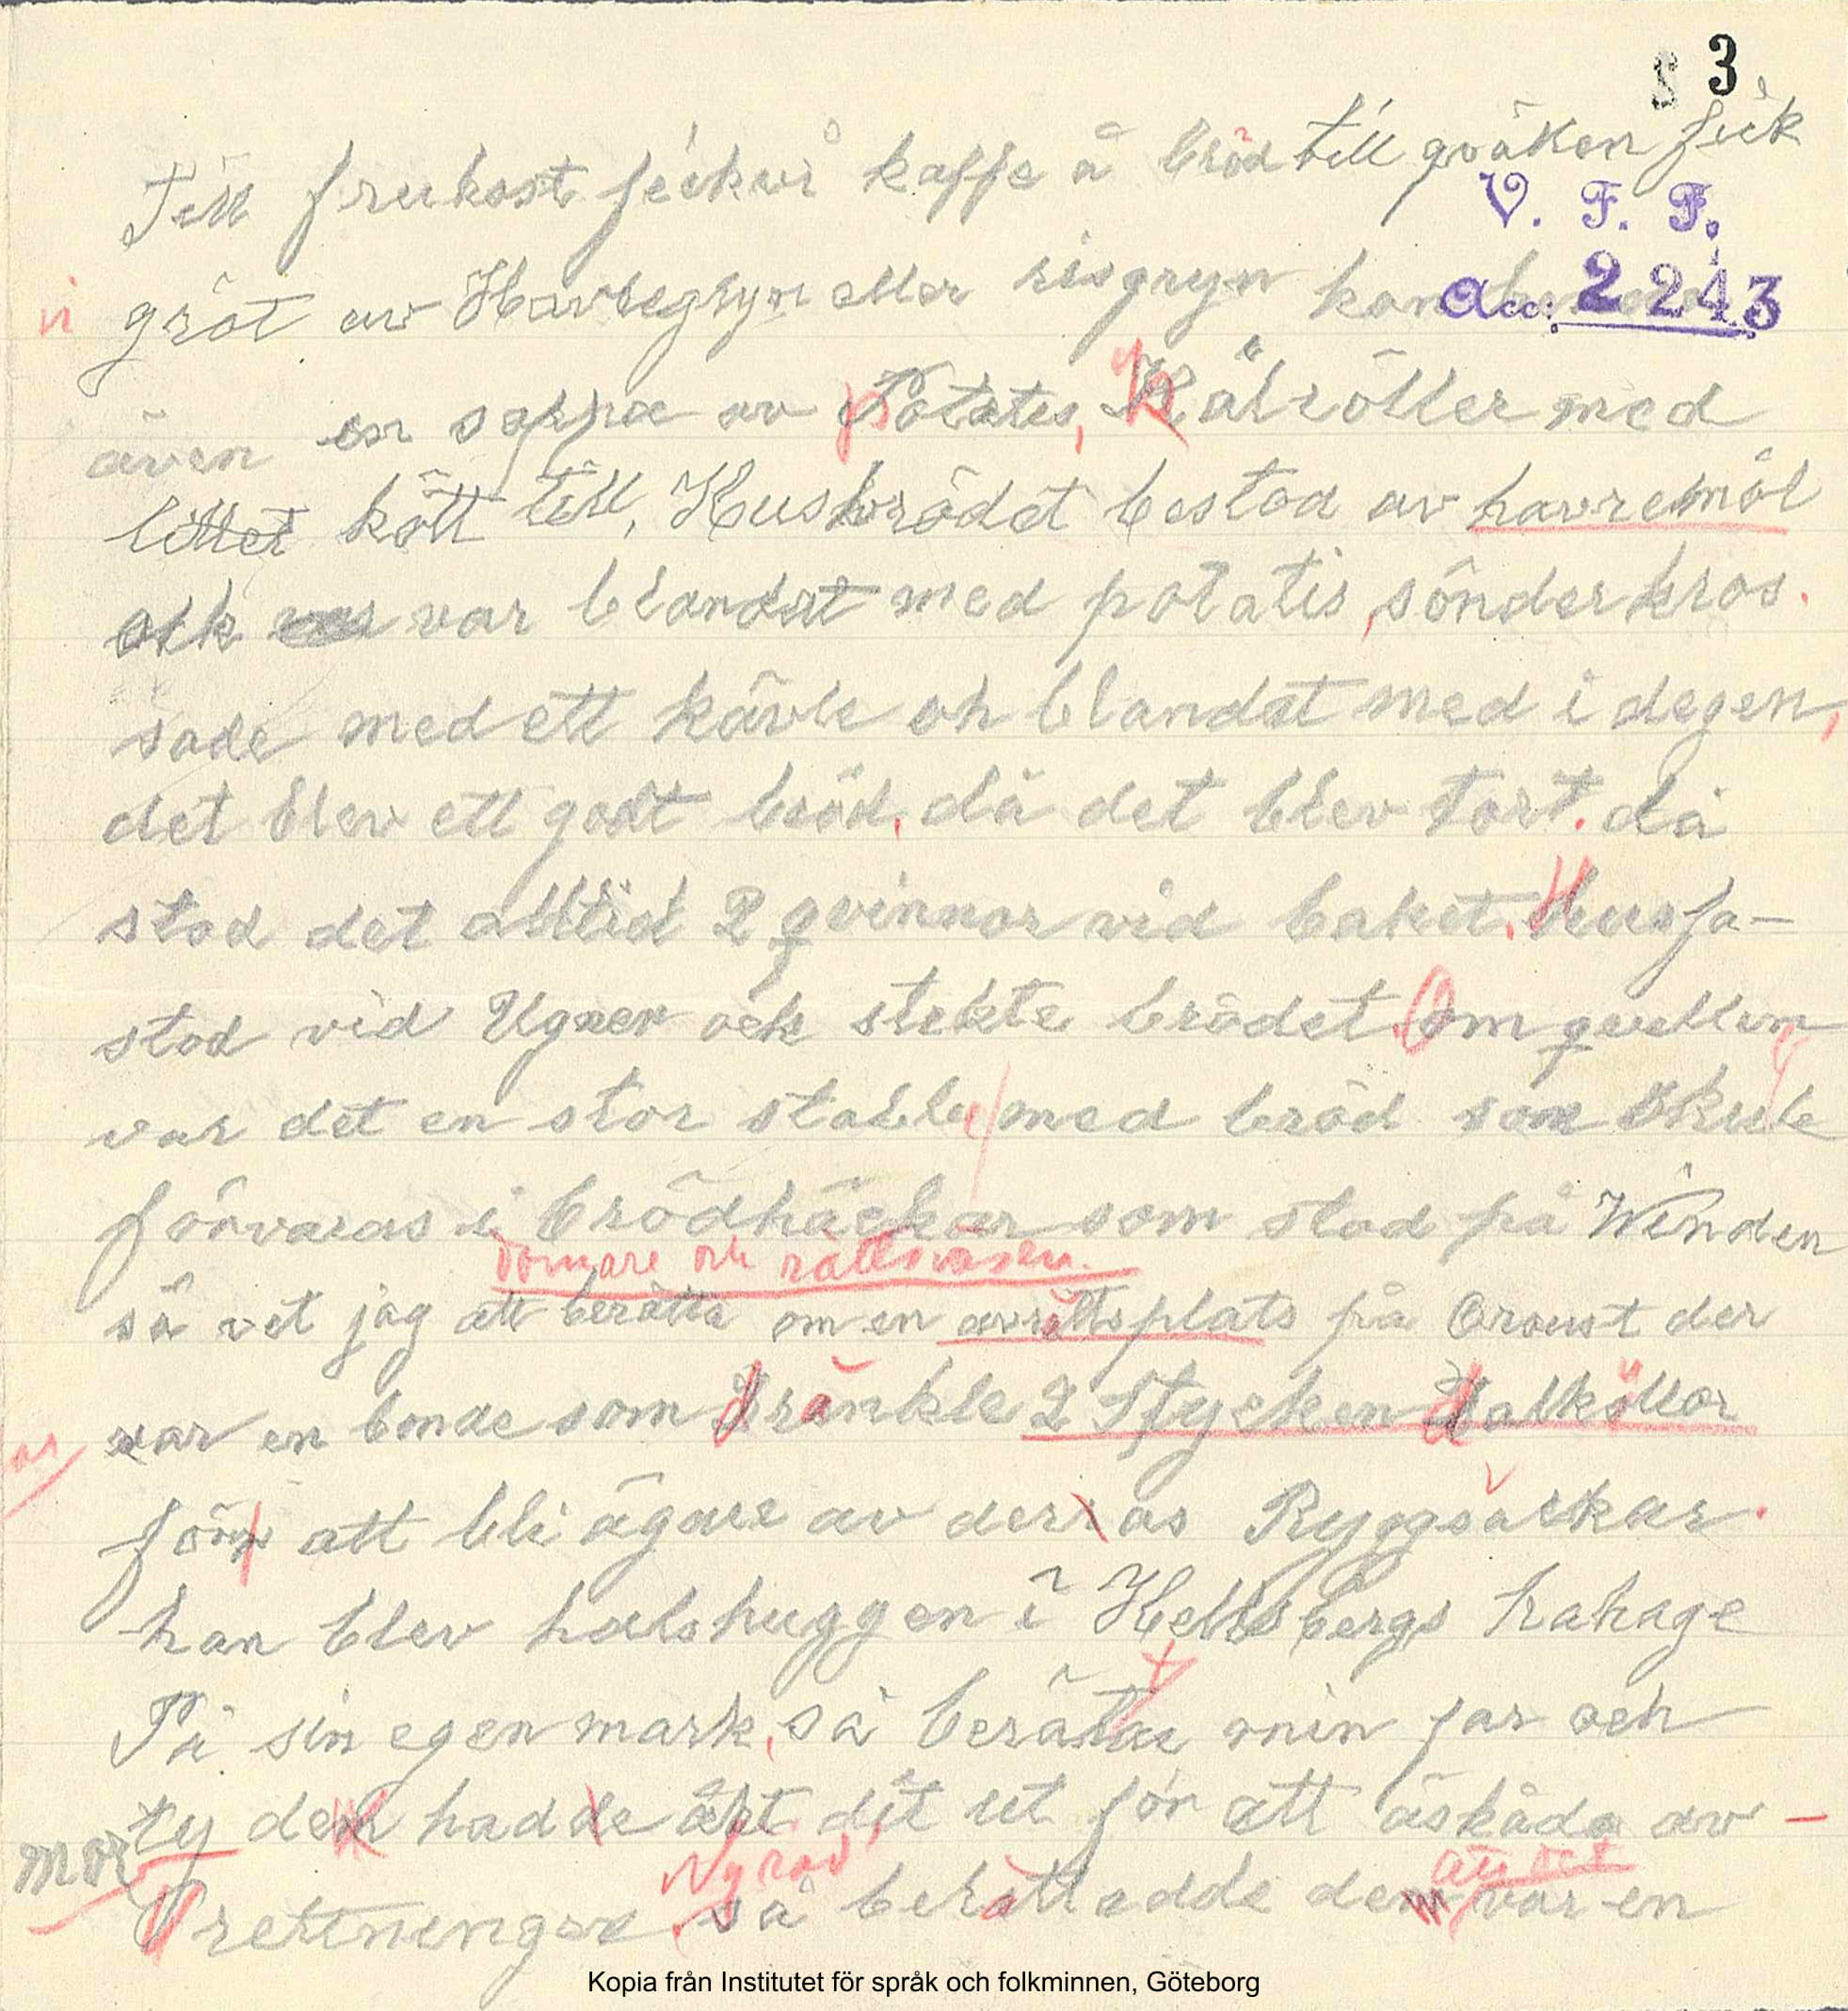 3
Till frukost fickvi kaffe å bröd till qväken fick
V. F. F.
vi gröt av Havregryn eller risgryn
Acc: 2243
även en soppa av Potates, Kålrötter med
littet kött till, Husbrödet bestod av havremöl
ock var blandat med potatis, sönderkros.
sade med ett kävle oh blandat med i degen,
det blev ett godt bröd, då det blev tort. då
stod det alltid 2 qvinnor vid baket. Husfa-
stod vid Ugnen och stekte brödet. Om qvellen
var det en stor stable med bröd som skule
förvaras i brödhäckar som stod på Winden
domare och rättsväsen.
så vet jag att berätta om en avrättsplats på Oroust der
var en bonde som dränkte 2 Stycken dalkullor
för att bli ägare av derras Ryggsäckar.
han blev halshuggen i Hellsbergs hahage
På sin egen mark, så beräta min far och
mor ty dem hadde åkt dit ut för att åskåda av-
Ny rad att det
rettningen. så berättadde dem var en
Kopia från Institutet för språk och folkminnen, Göteborg